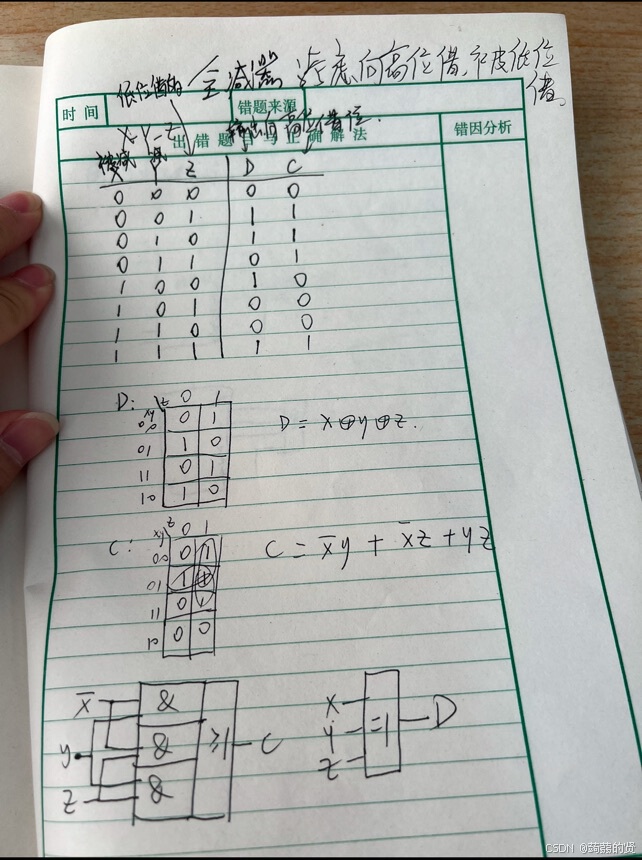 全减器 考虑向高位借,和被低位
借。
低位借的
时间
错题来源
X-Y-Z
向高位借位.
出错题目与正确解法
错因分析
被减 减
X Y Z D C
0 0 0 0 0
0 0 1 1 1
0 1 0 1 1
0 1 1 0 1
1 0 0 1 0
1 0 1 0 0
1 1 0 0 0
1 1 1 1 1
D: xy z 0 1
00 0 1
01 1 0
11 0 1
10 1 0
D = x⊕y⊕z.
C: xy z 0 1
00 0 1
01 1 1
11 0 1
10 0 0
C = x̅y + x̅z + yz
x̅ & 
y & ≥1 C
z &
X
Y =1 D
Z
CSDN @蒟蒻的贤